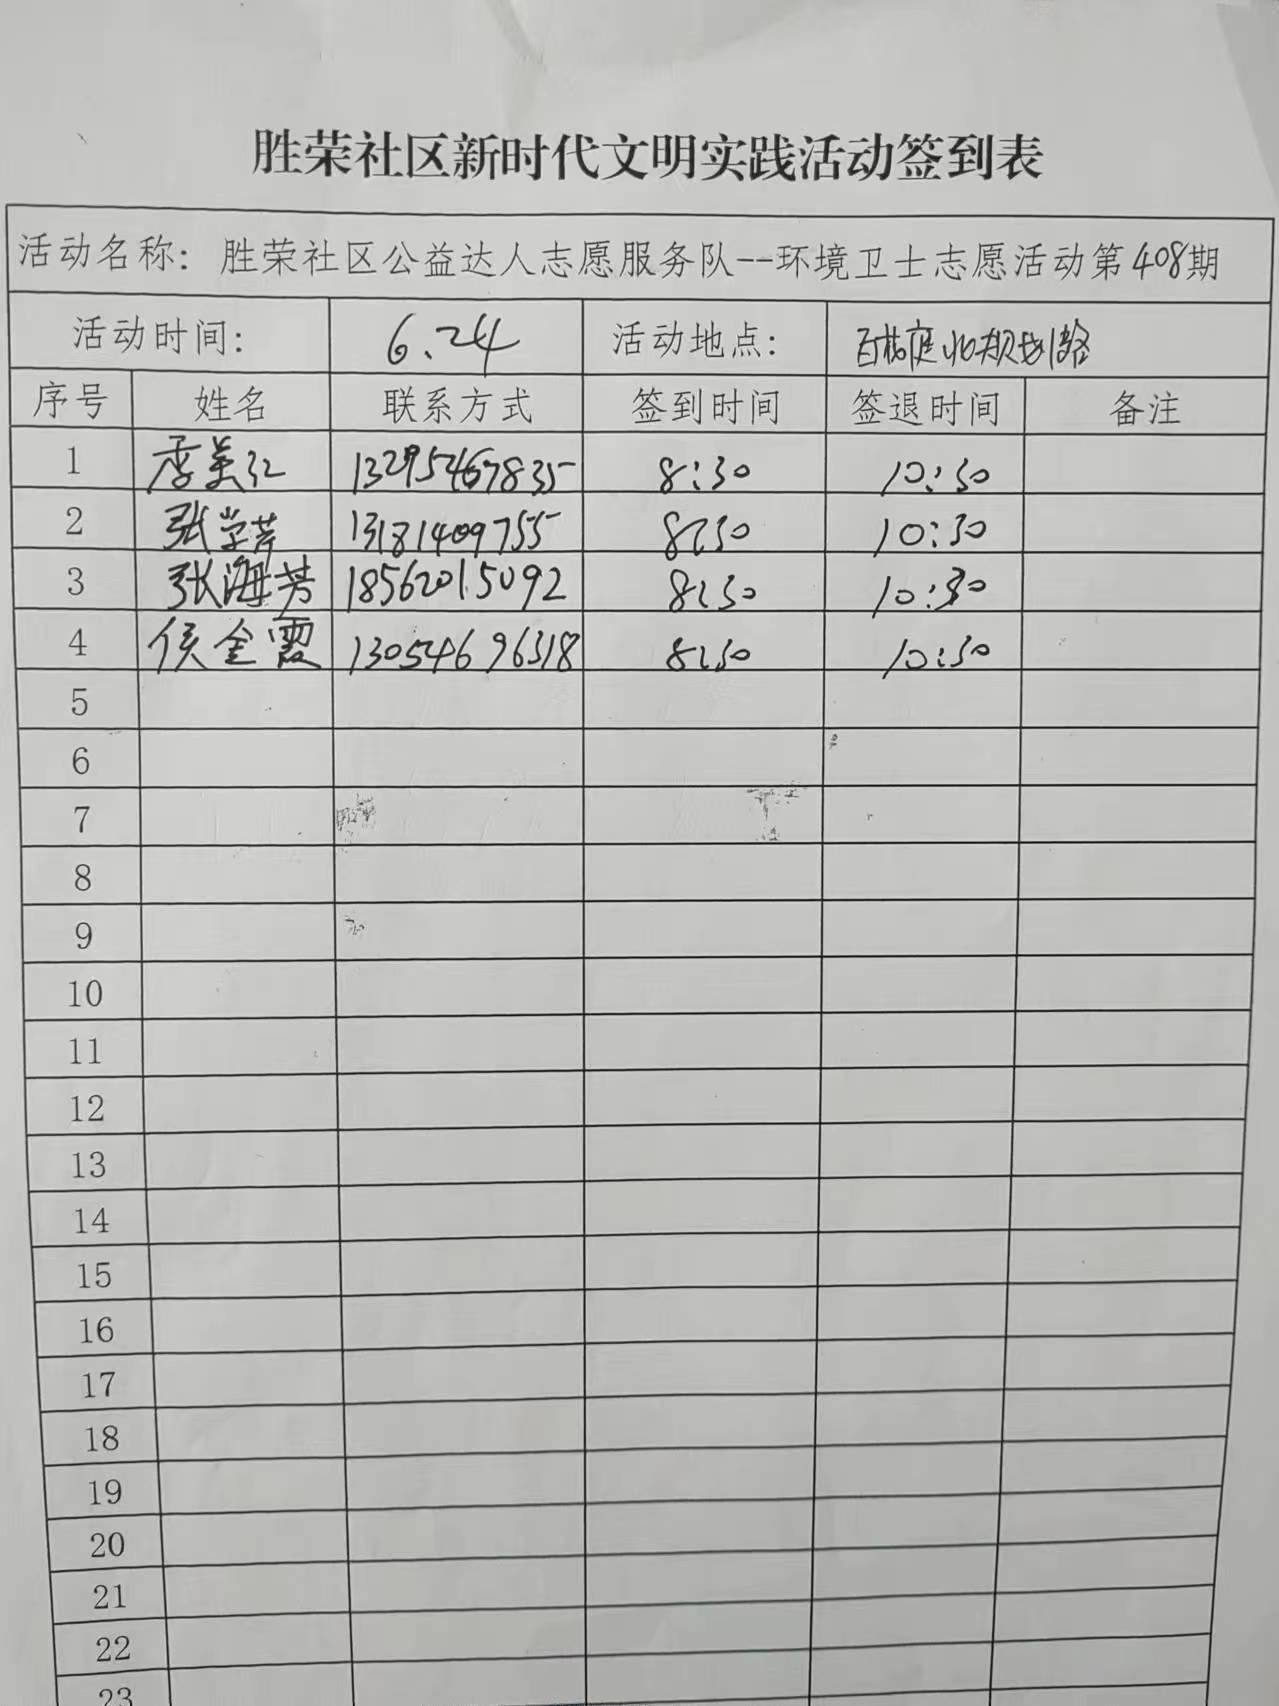 胜荣社区新时代文明实践活动签到表
活动名称: 胜荣社区公益达人志愿服务队--环境卫士志愿活动第408期
活动时间: 6.24 活动地点: 北规划路
序号 姓名 联系方式 签到时间 签退时间 备注
1 季美红 13295467835 8:30 10:30
2 张学芹 13181409755 8:30 10:30
3 张海芳 18562015092 8:30 10:30
4 侯金霞 13054696318 8:30 10:30
5
6
7
8
9
10
11
12
13
14
15
16
17
18
19
20
21
22
23